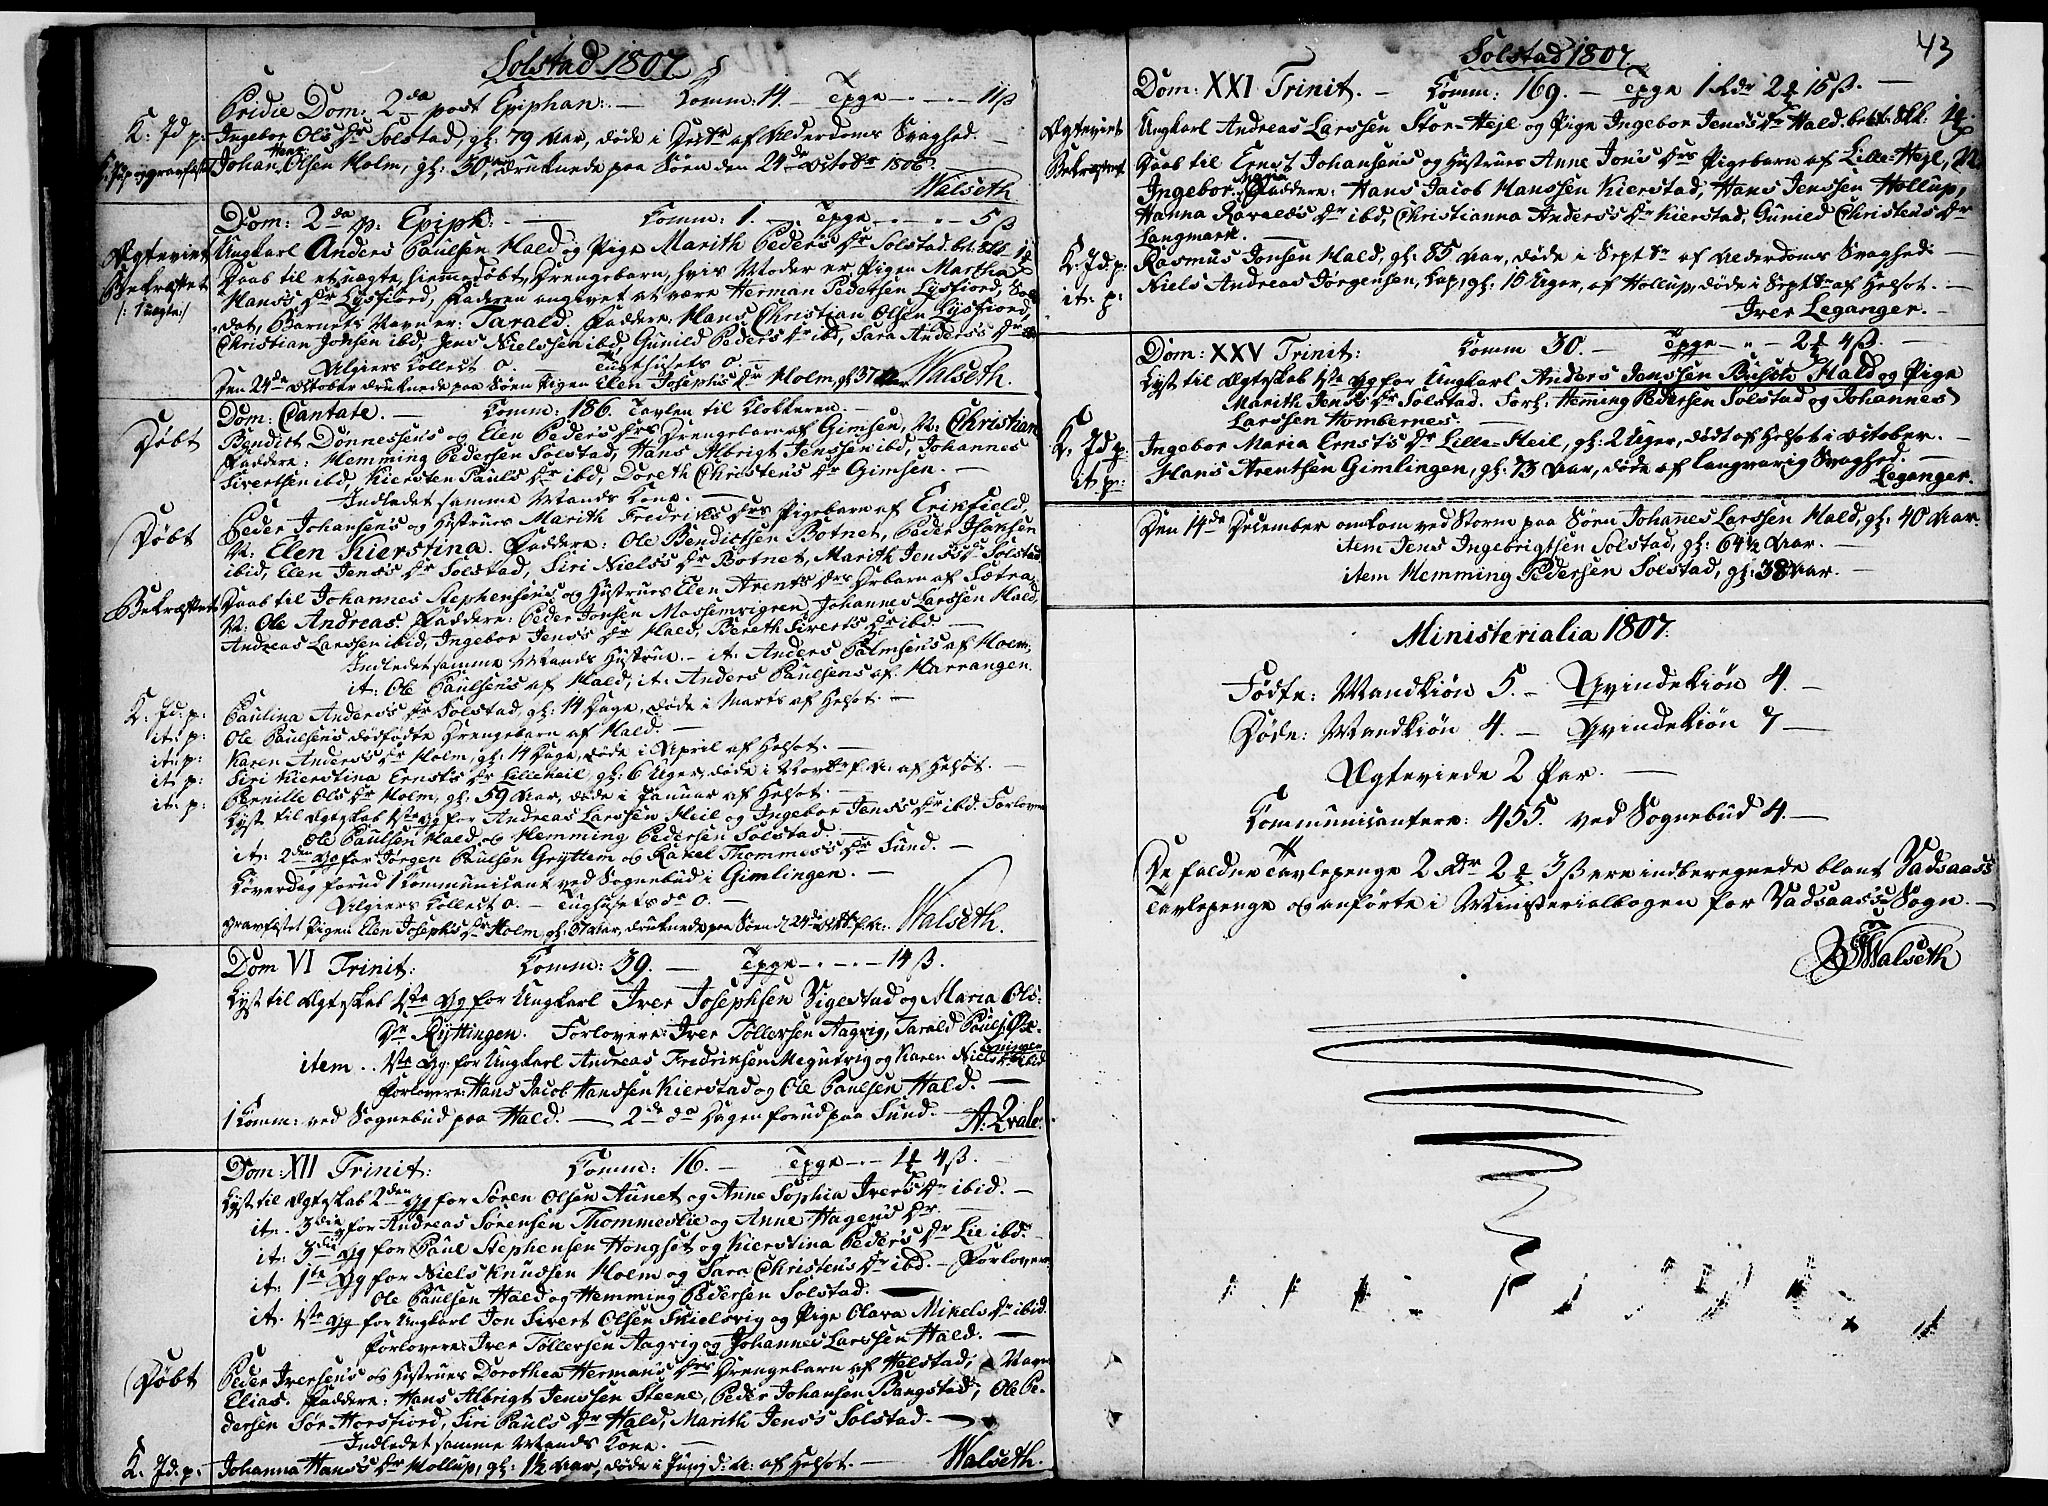 Solstad 1807.
Pridie Dom: 2da post Epiphan: — Komm: 14. — Tpge - - - 11 ß
K: Jd: p: Ingebor Ols Dr Solstad, gl: 79 Aar, døde i af Alderdoms Svaghed.
Johan Hans Olsen Holm, gl: 30 Aar, druknede paa Søen den 24de Octobr 1806.
Walseth
Dom: 2da p: Epiph: — Komm: 1. — Tpge - - - 5 ß
Ægteviet Ungkarl Anders Paulsen Hald og Pige Marith Peders Dr Solstad. bet: Skl
Bekræftet Daab til et uægte, hiemmedøbt Drengebarn, hvis Moder er Pigen Martha
/: Uægte :/ Hans's Dr Lysfiord, Faderen angivet at være Herman Pedersen Lysfiord, Sol-
dat, Barnets Navn er: Tarald. Faddere: Hans Christian Olsen Lysfiord,
Christian Jonsen ibd, Jens Nielssen ibd, Gunild Peders Dr ibd, Sara Anders's Dr ibd
Algiers Collect 0. — Tugthusets 0. —
Den 24de October druknede paa Søen Pigen Elen Josephs Dr Holm, gl: 37 Aar Walseth.
Dom: Cantate. — Komm: 186. Tavlen til Klokkeren. —
Døbt Bendict Dønnessen's og Elen Peders Drs Drengebarn af Gimsen, N: Christian
Faddere: Hemming Pedersen Solstad, Hans Albrigt Jenssen ibd, Johannes
Sivertsen ibd, Kiersten Pauls Dr ibd, Doreth Christens Dr Gimsen. —
Indledet samme Mands Kone. —
Døbt Peder Johansens og Hustrues Marith Fredriks Drs Pigebarn af Erikfield,
N: Elen Kierstina. Faddere: Ole Bendictsen Botnet, Peder Johansen
ibid, Elen Jens's Dr Solstad, Siri Niels's Dr Botnet, Marith Jens's Dr Solstad
Bekræftet Daab til Johannes Stephensens og Hustrues Elen Arents Drs Drbarn af Sætra,
N: Ole Andreas. Faddere: Peder Jonsen Mossemvigren, Johannes Larssen Hald,
Andreas Larssen ibid, Ingebor Jens's Dr Hald, Bereth Siverts Dr ibd. —
Indledet samme Mands Hustrue. — it: Anders Palmsens af Holm,
it: Ole Paulsen's af Hald, it: Anders Paulsens af Harrangen.
K: Jd: p: Paulina Anders's Dr Solstad, gl: 14 Dage, døde i Marts af Helsot. —
it: p: Ole Paulsens dødfødte Drengebarn af Hald. —
it: p: Karen Anders's Dr Holm, gl: 14 Dage, døde i April af Helsot. —
it: p: Siri Kierstina Ernsts Dr Lilleheil, gl: 6 Uger, døde i f. A: af Helsot. —
it: p: Pernille Ols Dr Holm, gl: 59 Aar, døde i Januar af Helsot. —
Lyst til Ægteskab 1ste Gg for Andreas Larssen Heil og Ingebor Jens's Dr ibd. Forlovere
Ole Paulsen Hald og Hemming Pedersen Solstad. —
it: 2den Gg for Jørgen Paulsen Gryttem og Rakel Thommes's Dr Sund. —
Løverdag forud 1 Kommunicant ved Sognebud i Gimlingen. —
Algiers Collect 0. — Tughusets do 0. —
Gravfæstet Pigen Elen Josephs Dr Holm, gl: 37 Aar, druknede paa Søen d 24de Octbr f. A. Walseth.
Dom VI Trinit: Komm: 39. — Tpge - - - 14 ß.
Lyst til Ægteskab 1ste Gg for Ungkarl Iver Josephsen Vigestad og Maria Ols-
Dr Ryttingen. Forlovere: Iver Tollersen Aagvig, Tarald Pauls:
item .. 1ste Gg: for Ungkarl Andreas Fredriksen Megutvig og Karen Niels Dr ibid
Forlovere: Hans Jacob Hanssen Kierstad og Ole Paulsen Hald. —
1 Komm: ved Sognebud paa Hald. — 2de do Dagen forud paa Sund. — A: Qvale.
Dom: XII Trinit: Komm: 16. — Tpge - - 1 # 4 ß.
Lyst til Ægteskab 2den Gg for Søren Olsen Aunet og Anne Sophia Ivers Dr ibid. —
it. 3die for Andreas Sørensen Thommeslie og Anne Hagens Dr. —
it: 3die Gg for Paul Stephensen Hongset og Kierstina Peders Dr Lie ibd. —
it: 1ste Gg for Niels Knudsen Holm og Sara Christens Dr ibd. — Forlovere
Ole Paulsen Hald og Hemming Pedersen Solstad. —
it. 1ste Gg for Ungkarl Jon Sivert Olsen Skielsvig og Pige Olava Mikels Dr ibid.
Forlovere: Iver Tollersen Aagvig og Johannes Larssen Hald. —
Døbt Peder Iversens og Hustrues Dorothea Hermans Drs Drengebarn af Helstad, Navn
Elias. Faddere: Hans Albrigt Jenssen Steene, Peder Johansen Bangstad, Ole Pe-
dersen Sør-Horsfiord, Siri Pauls Dr Hald, Marith Jens's Solstad. —
Indledet samme Mands Kone. —
K. Jd: p: Johanna Hans's Dr Hollup, gl: 1½ Aar, døde i Juny d: A: af Helsot. — Walseth.
43
Solstad 1807.
Dom: XXI Trinit. — Komm: 169. — Tpge 1 Rdr 2 # 15 ß. —
Ægteviet Ungkarl Andreas Larssen Stor-Hejl og Pige Ingebor Jens's Dr Hald. bet: Skl:
Bekræftet Daab til Ernst Johansens og Hustrues Anne Jons Drs Pigebarn af Lille-Hejl, N:
Ingebor Maria. Faddere: Hans Jacob Hanssen Kierstad, Hans Jenssen Hollup,
Hanna Ravalds Dr ibd, Christianna Anders's Dr Kierstad, Gunild Christens Dr
Langmark. —
K: Jd: p: Rasmus Jonsen Hald, gl: 85 Aar, døde i Septbr af Alderdoms Svaghed. —
it: p: Niels Andreas Jørgensen, gl: 16 Uger, af Hollup, døde i Septbr af Helsot. —
Iver Leganger. —
Dom: XXV Trinit: Komm 30. — Tpge - " - 2 # 4 ß. —
Lyst til Ægteskab 1ste Gg for Ungkarl Anders Janssen Hald og Pige
Marith Jens's Dr Solstad. Forl: Hemming Pedersen Solstad og Johannes
Larssen Hombernes. —
K: Jd: p: Ingebor Maria Ernsts Dr Lille-Heil, gl: 2 Uger, dødt af Helsot i October. —
it p: Hans Arentsen Gimlingen, gl: 73 Aar, døde af langvarig Svaghed. —
Leganger.
Den 14de December omkom ved Storm paa Søen Johannes Larssen Hald, gl: 40 Aar.
item Jens Ingebrigtsen Solstad, gl: 64½ Aar. —
item Hemming Pedersen Solstad, gl: 38 Aar. —
Ministerialia 1807.
Fødte: Mandkiøn 5. — Qvindekiøn 4. —
Døde: Mandkiøn 4. — Qvindekiøn 7 —
Ægteviede 2 Par. —
Kommunicantere: 455. ved Sognebud 4. —
De faldne Tavlepenge 2 Rdr 2 # 3 ß ere indberegnede blant Vadsaass
Tavlepenge og anførte i Ministerialbogen for Vadsaass Sogn. —
Walseth